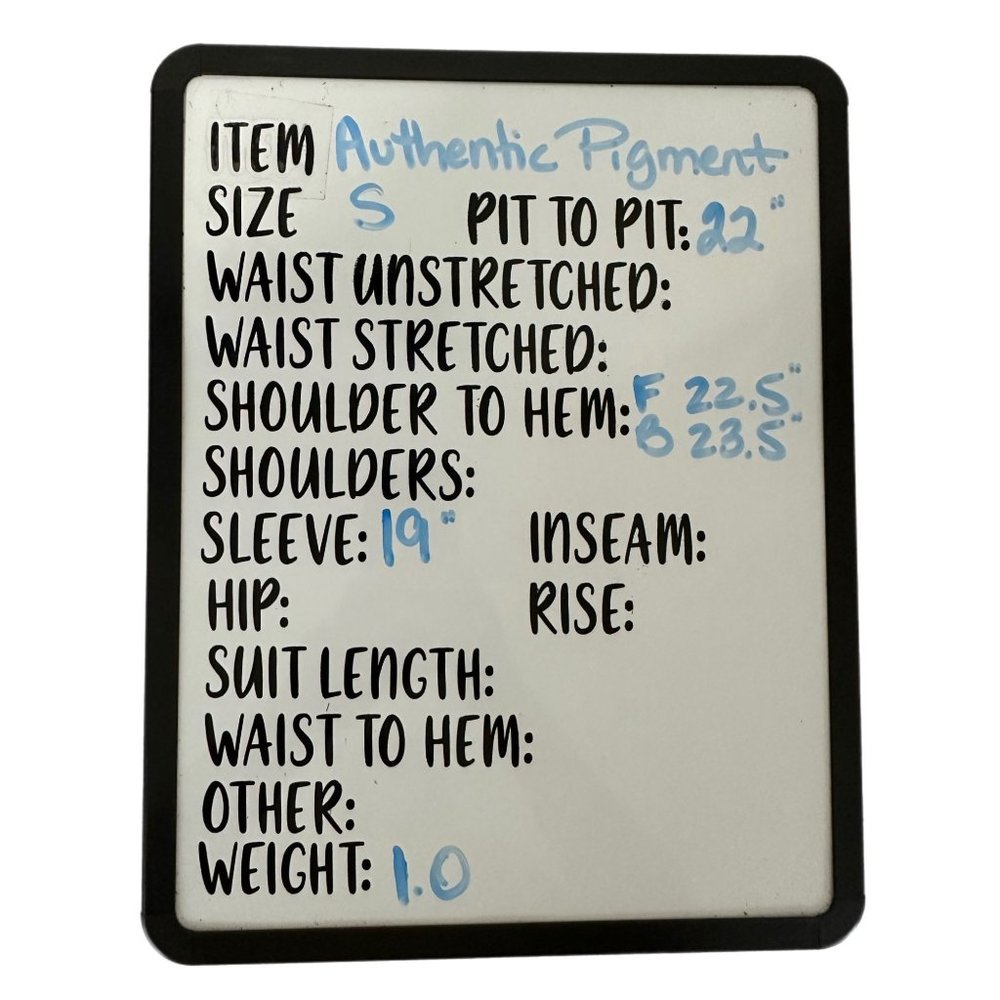 ITEM Authentic Pigment
SIZE S PIT TO PIT: 22"
WAIST UNSTRETCHED:
WAIST STRETCHED:
SHOULDER TO HEM: F 22.5"
B 23.5"
SHOULDERS:
SLEEVE: 19" INSEAM:
HIP: RISE:
SUIT LENGTH:
WAIST TO HEM:
OTHER:
WEIGHT: 1.0